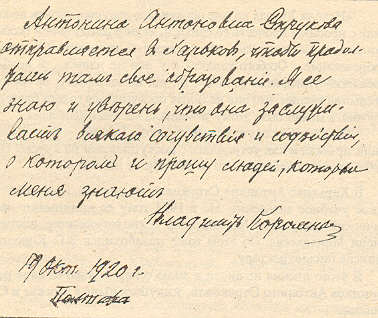 Антонина Антоновна Струкова
отправляется в Харьковъ, чтобы продол-
жать тамъ свое образованіе. Я ее
знаю и увѣренъ, что она заслужи-
ваетъ всякаго сочувствія и содѣйствія,
о которомъ и прошу людей, которые
меня знаютъ
Владиміръ Короленко
19 Окт. 1920 г.
Полтава